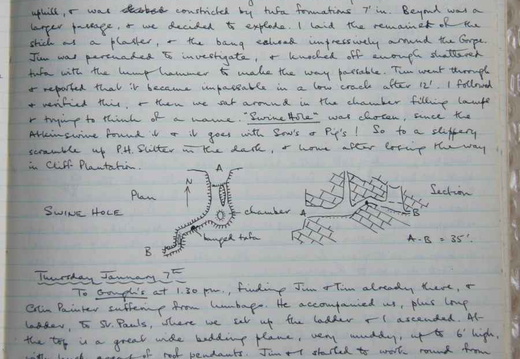 uphill, & was constricted by tufa formations 7' in. Beyond was a
larger passage, & we decided to explode. I laid the remains of the
stick as a plaster, & the bang echoed impressively around the Gorge.
Jim was persuaded to investigate, & knocked off enough shattered
tufa with the lump hammer to make the way passable. Tim went through
& reported that it became impassable in a low crawl after 12'. I followed
& verified this, & then we sat around in the chamber filling lamps
& trying to think of a name. "Swine Hole" was chosen, since the
Atkinswine found it & it goes with Sow's & Pig's! So to a slippery
scramble up P.H. Slitter in the dark, & home after losing the way
in Cliff Plantation.
A
Plan
N
Section
SWINE HOLE
chamber
A
B
banged tufa
A - B = 35'.
B
Thursday January 7th
To Gough's at 1.30 pm., finding Jim & Tim already there, &
Colin Painter suffering from lumbago. He accompanied us, plus long
ladder, to St. Pauls, where we set up the ladder & I ascended. At
the top is a great wide bedding plane, very muddy, up to 6' high,
with great areas of roof pendants. Jim & I started to work round from